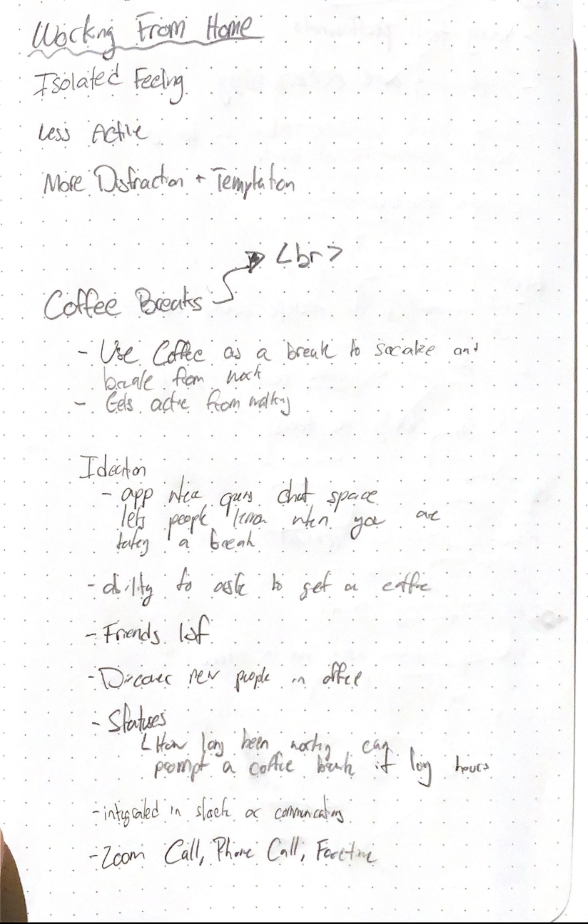 Working From Home
Isolated Feeling
Less Active
More Distraction + Temptation
<br>
Coffee Breaks
- Use Coffee as a break to socialize and
break from work
- Gets active from walking
Ideation
- app chat space
lets people know when you are
taking a break
- ability to ask to get a coffee
- Friends list
- Discover new people in office
- Statuses
How long been working can
prompt a coffee break if long hours
- integrated in slack or communication
- Zoom Call, Phone Call, Facetime